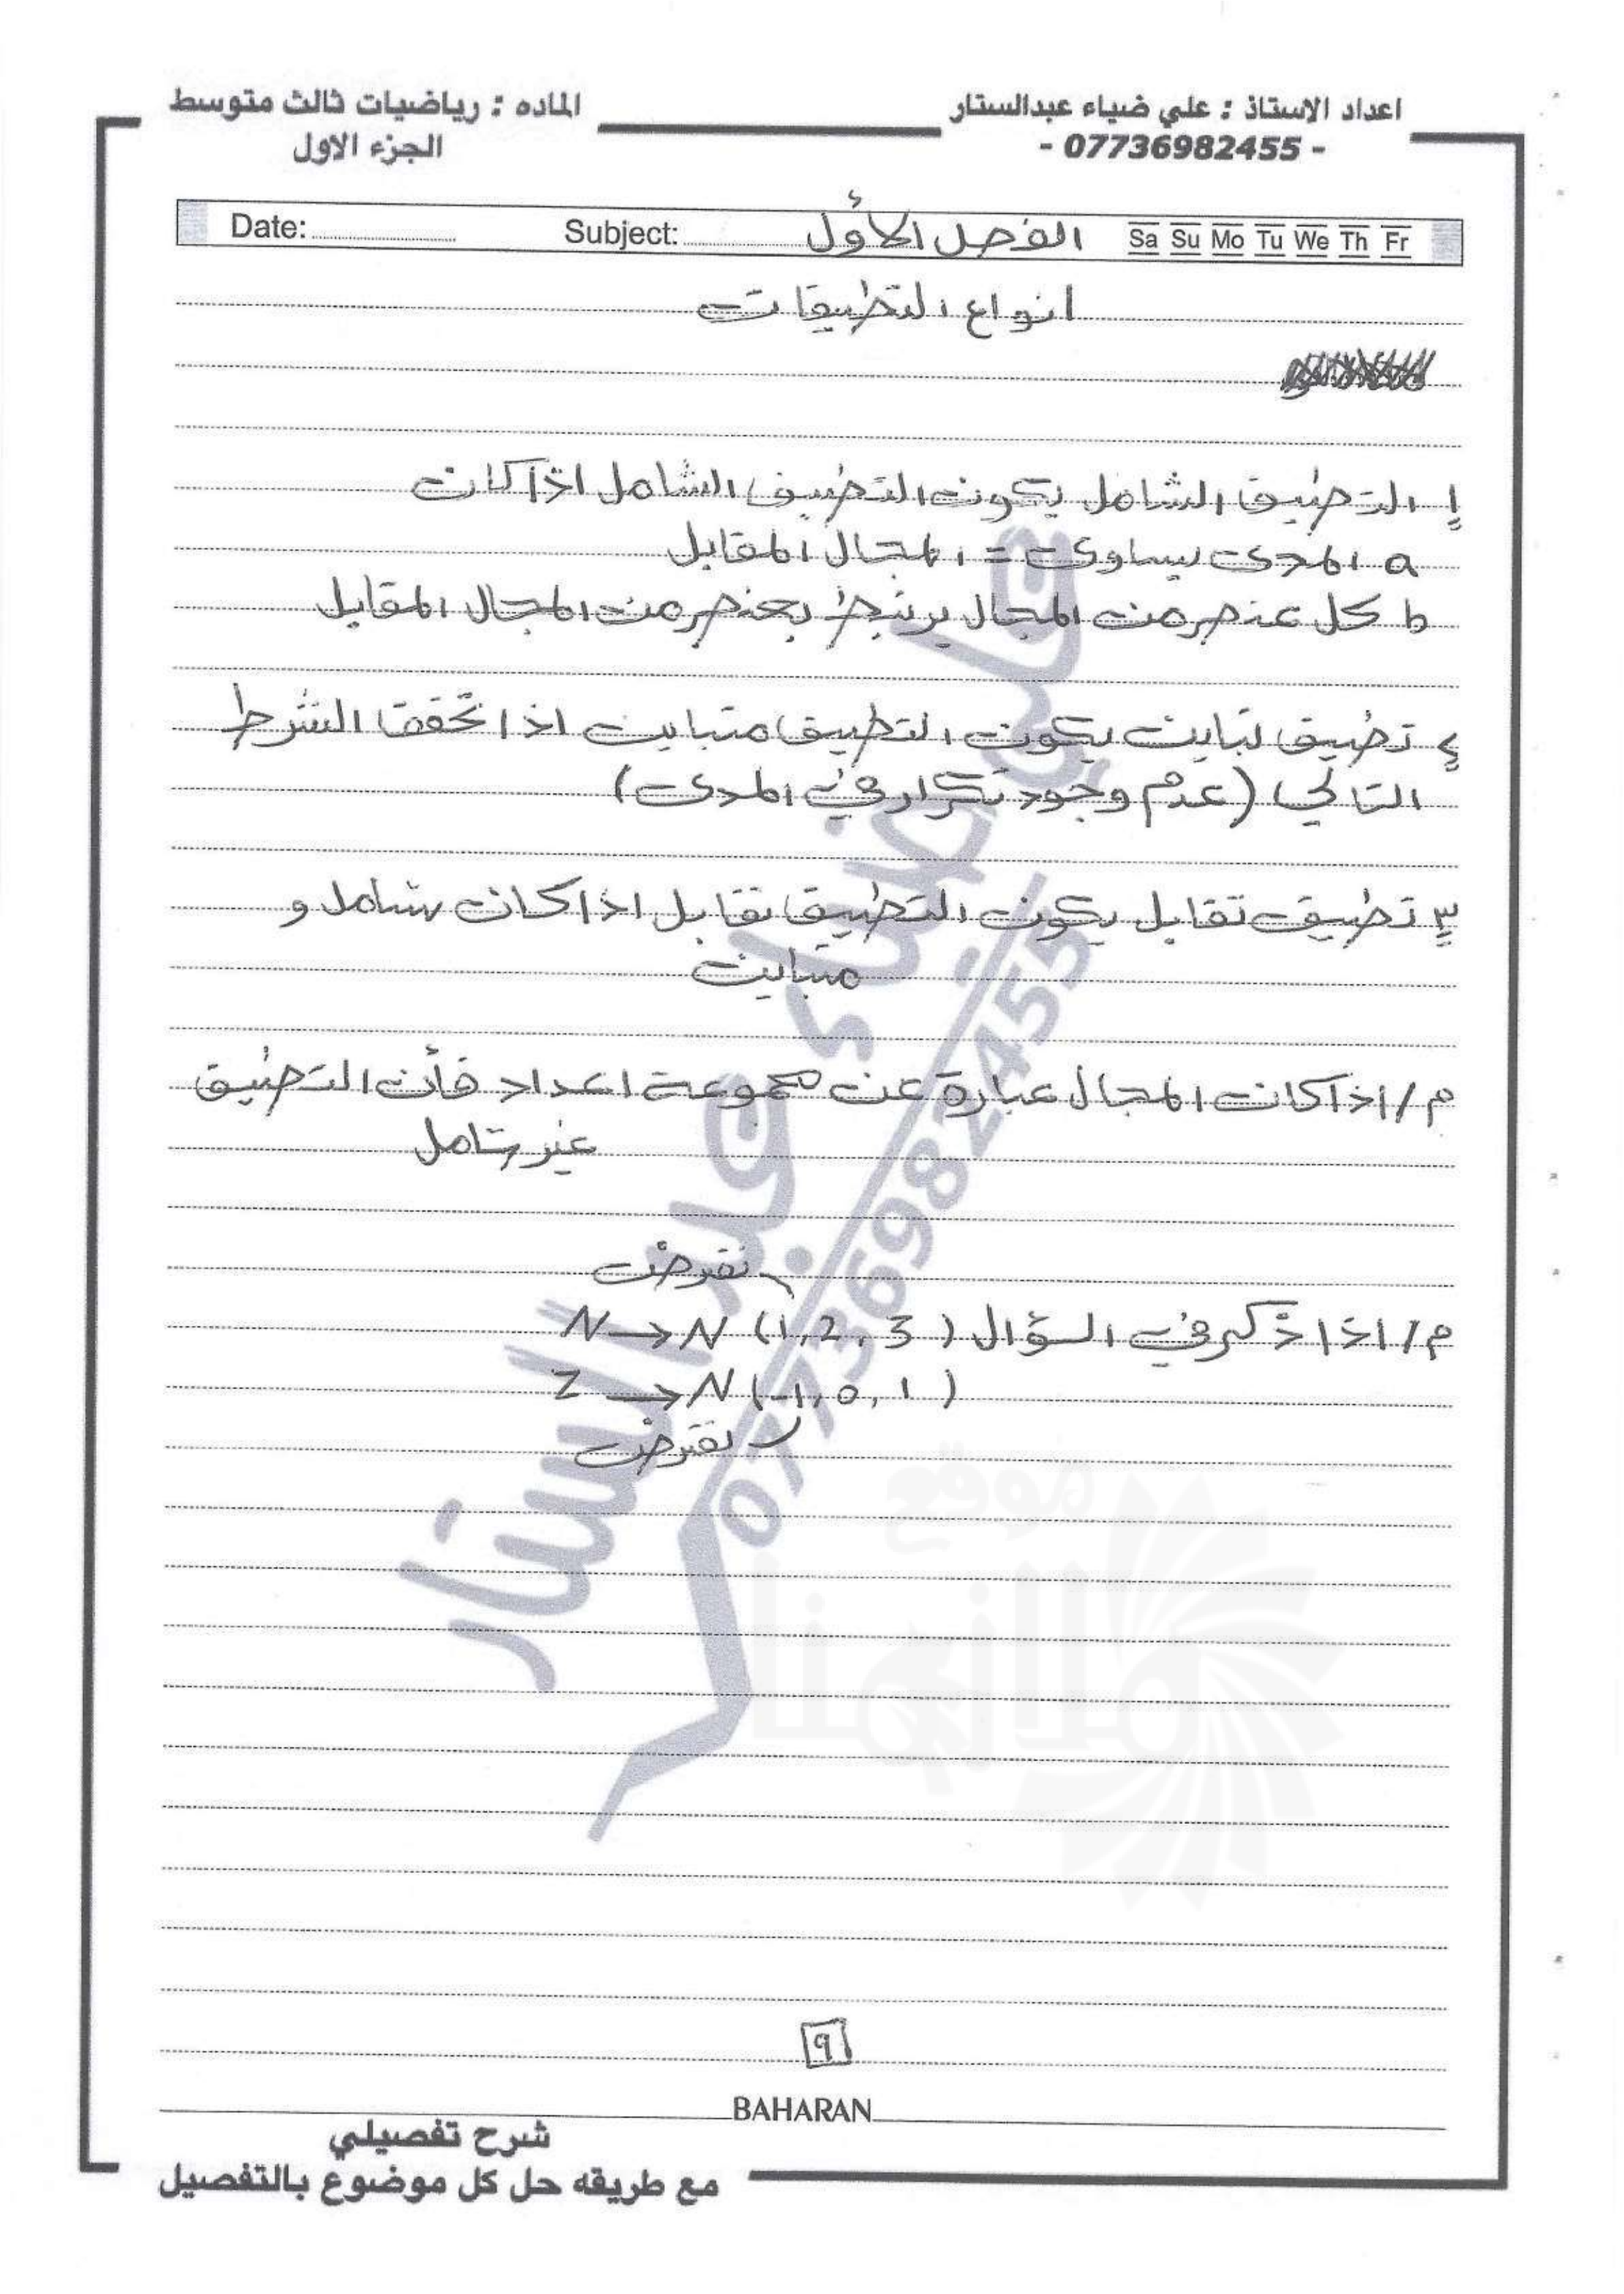 اعداد الاستاذ : علي ضياء عبدالستار
- 07736982455 -
الماده : رياضيات ثالث متوسط
الجزء الاول
Date: Subject: الفصل الأول Sa Su Mo Tu We Th Fr
انواع التطبيقات
١ التطبيق الشامل يكون التطبيق الشامل اذا كانت
a المدى يساوي = المجال المقابل
b كل عنصر من المجال يرتبط بعنصر من المجال المقابل
٢ تطبيق تباين يكون التطبيق متباين اذا تحقق الشرط
التالي (عدم وجود تكرار في المدى)
٣ تطبيق تقابل يكون التطبيق تقابل اذا كان شامل و
متباين
م/ اذا كانت المجال عبارة عن مجموعة اعداد فأن التطبيق
غير شامل
نفرض
م/ اذا ذكر في السؤال N → N (1, 2, 3)
Z → N (-1, 0, 1)
لا نفرض
علي ضياء عبد الستار
07736982455
موقع
ملازمنا
٩
BAHARAN
شرح تفصيلي
مع طريقه حل كل موضوع بالتفصيل